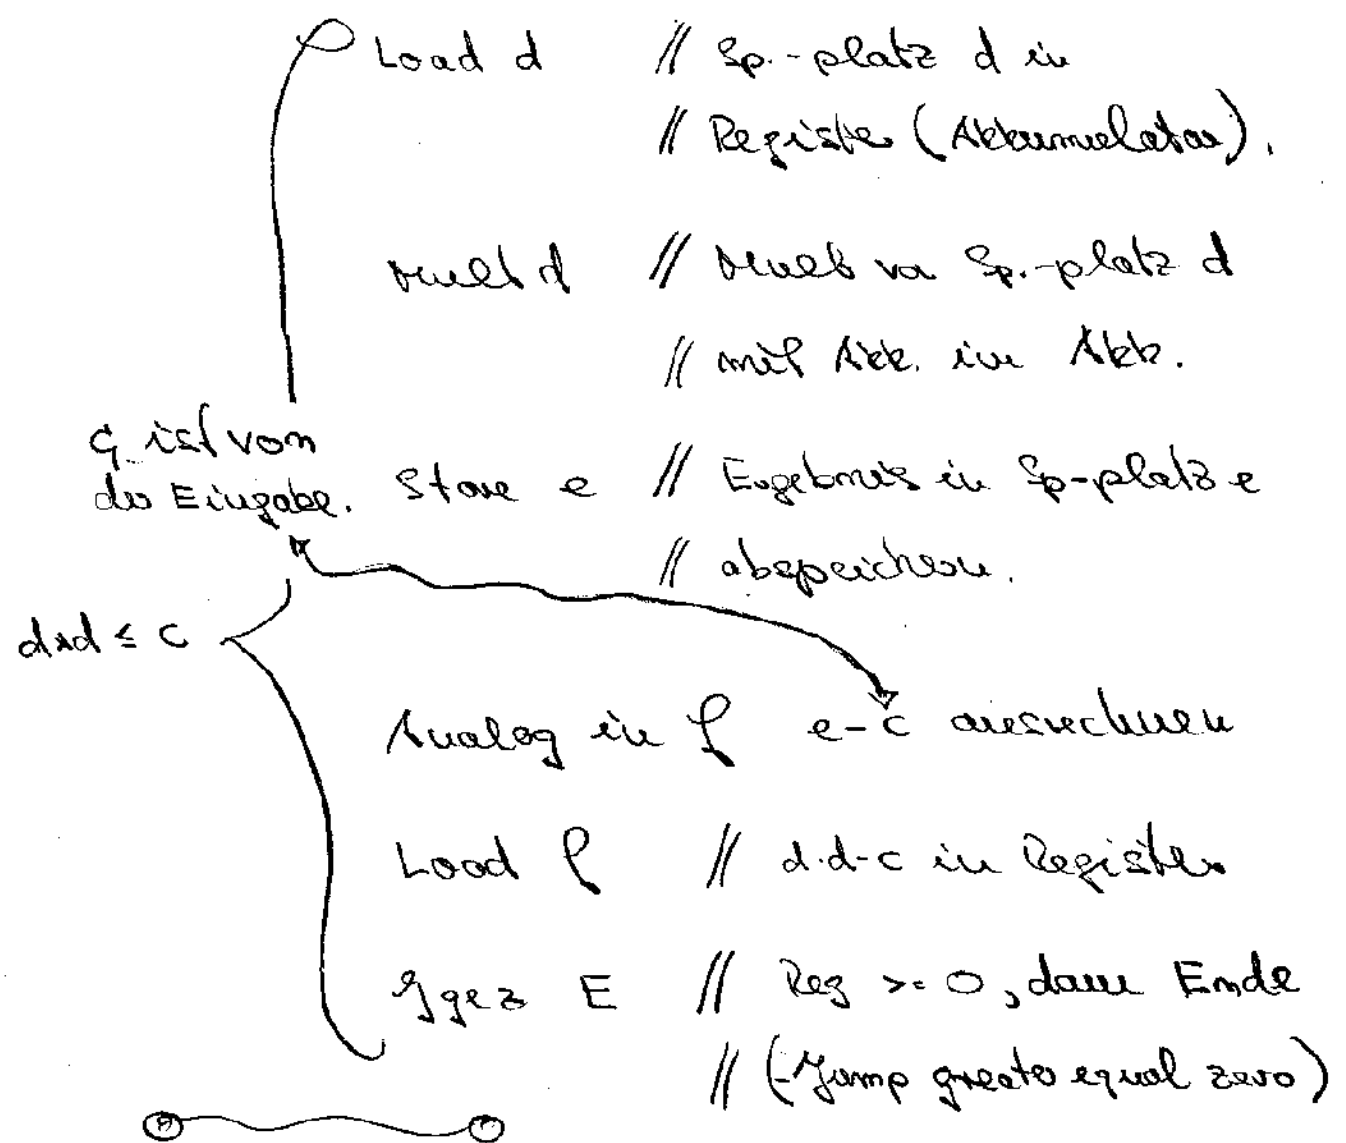 Load d // Sp.-platz d in
// Register (Akkumulator).
Mult d // Mult von Sp.-platz d
// mit Akk. in Akk.
C ist von
der Eingabe. Store e // Ergebnis in Sp-platz e
// abspeichern.
d*d ≤ c
Analog in f e-c ausrechnen
Load f // d·d-c in Register
Jgez E // Reg >= 0, dann Ende
// (-Jump greater equal zero)